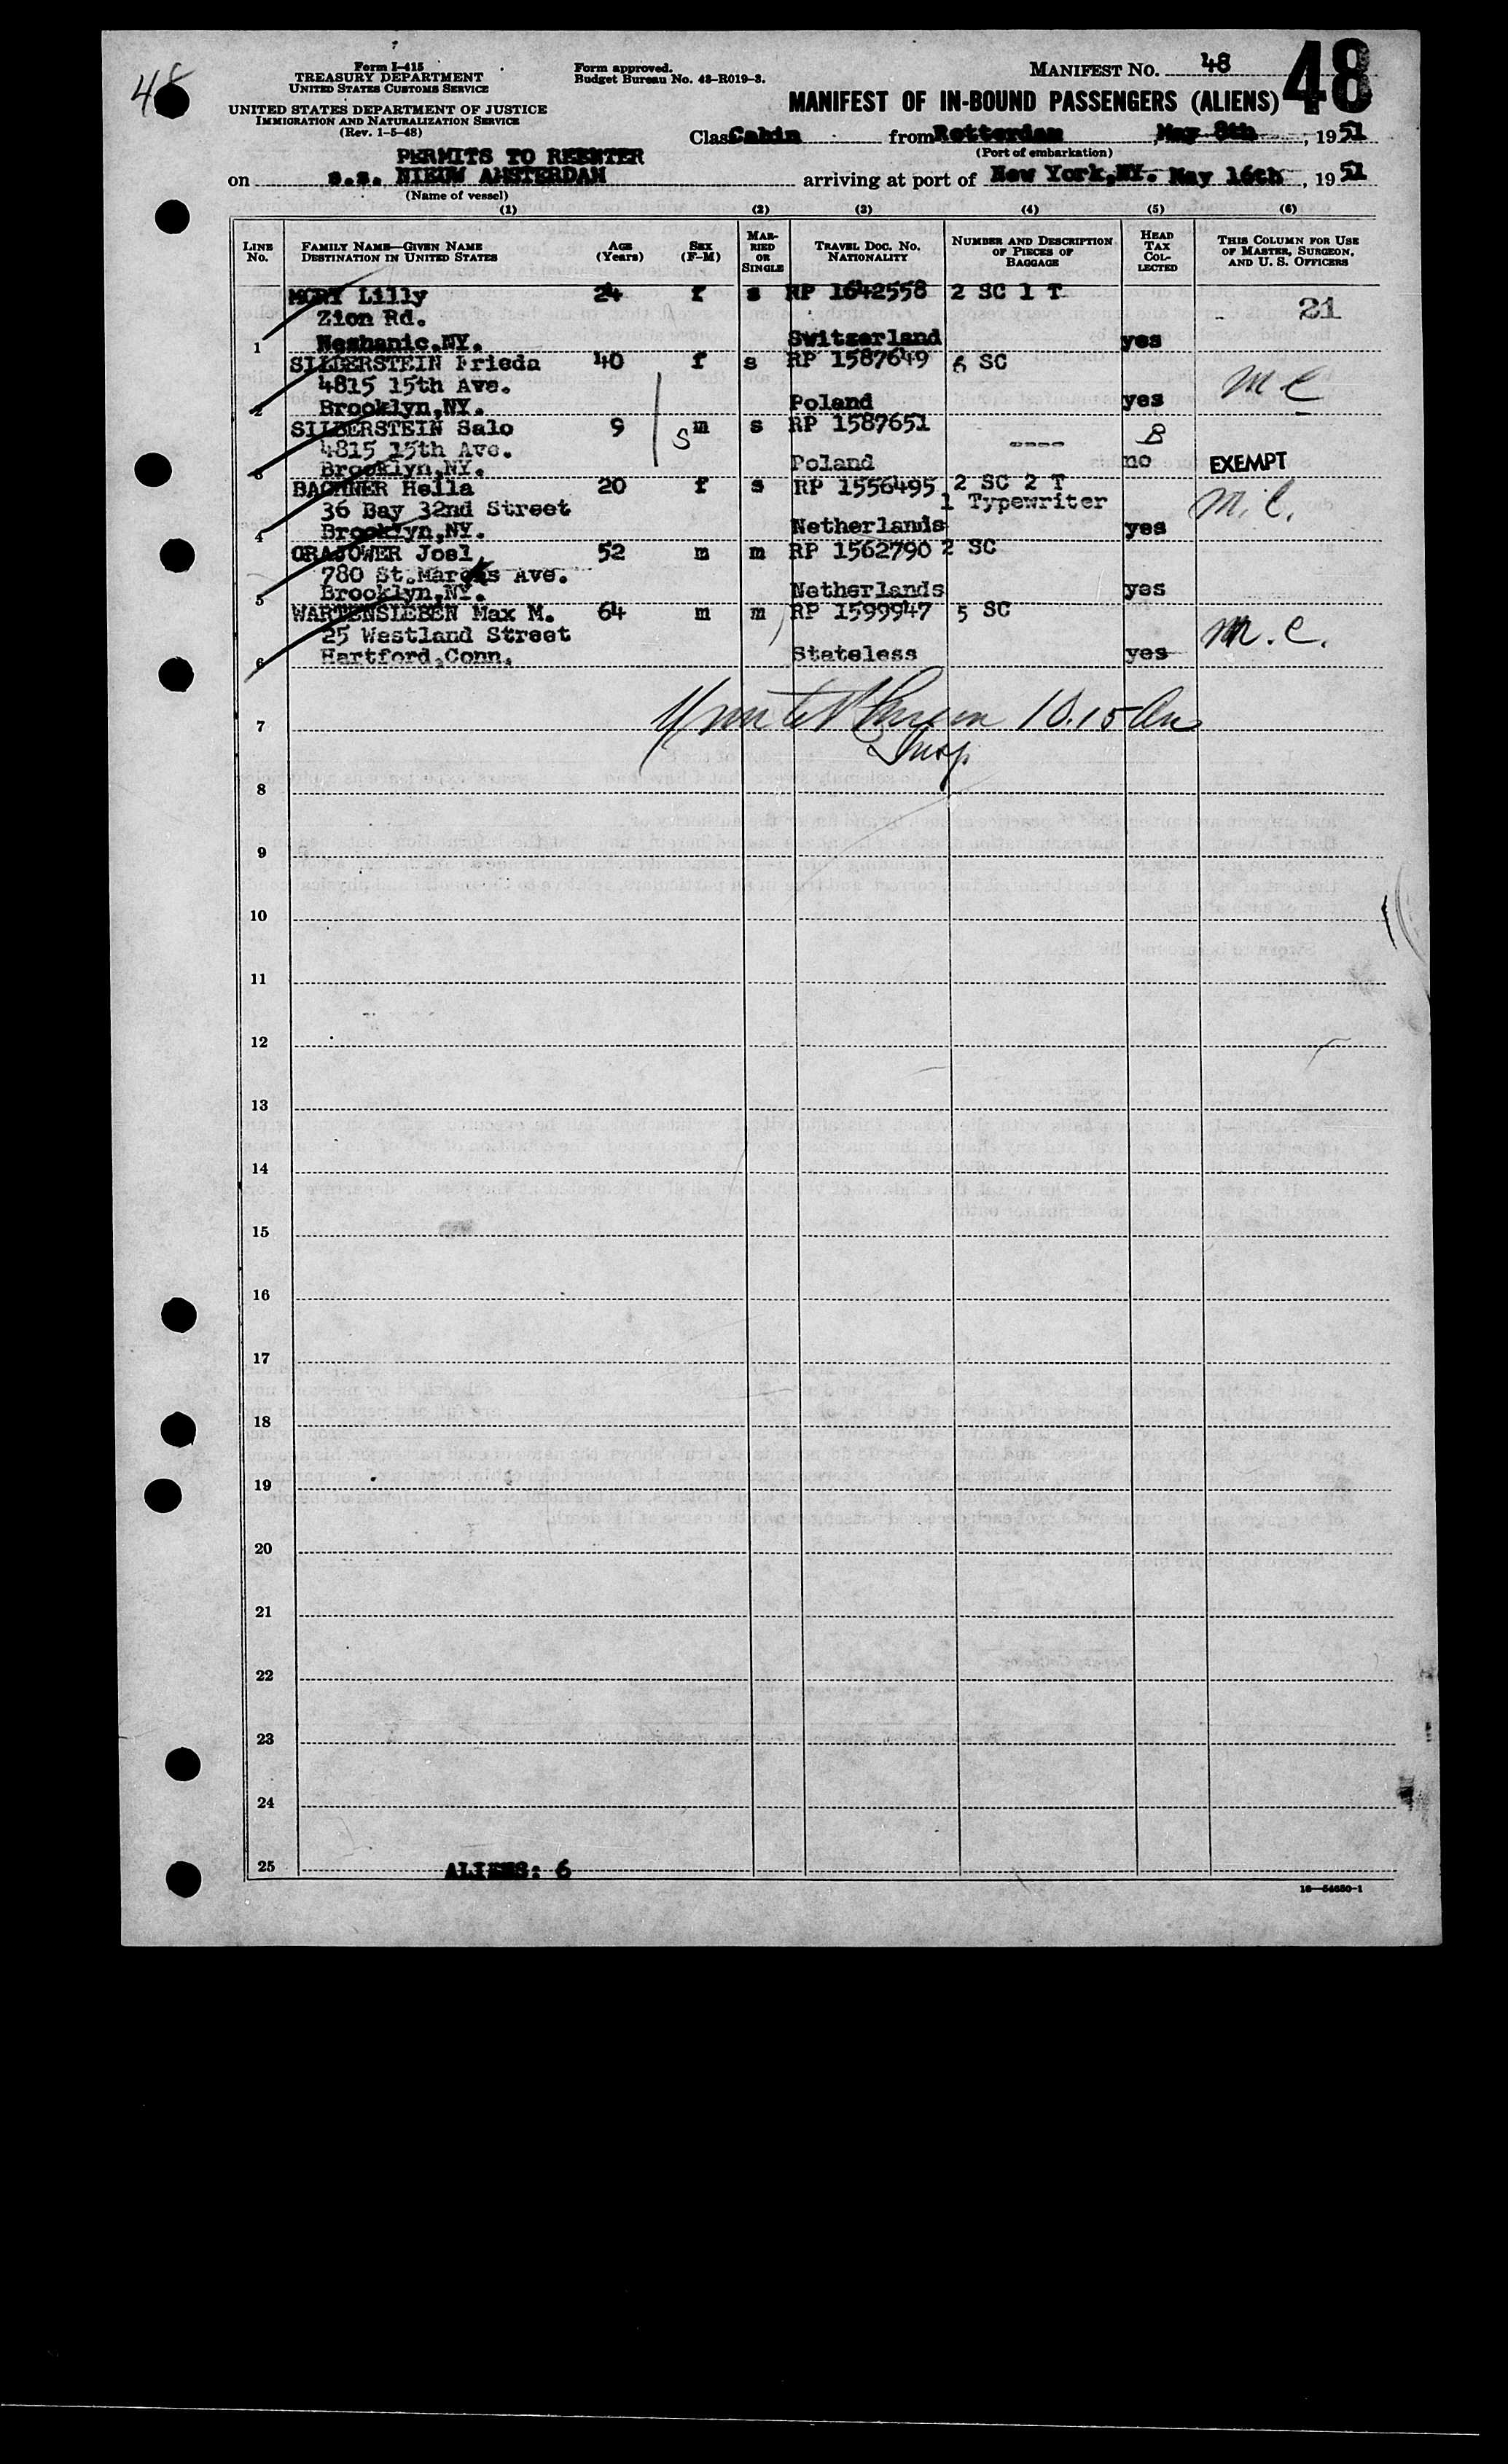 48
Form I-415
TREASURY DEPARTMENT
UNITED STATES CUSTOMS SERVICE
UNITED STATES DEPARTMENT OF JUSTICE
IMMIGRATION AND NATURALIZATION SERVICE
(Rev. 1-5-48)
Form approved.
Budget Bureau No. 43-R019-3.
MANIFEST NO. 48
48
MANIFEST OF IN-BOUND PASSENGERS (ALIENS)
Class Cabin from Rotterdam, May 8th, 1951
(Port of embarkation)
PERMITS TO REENTER
on s.s. NIEUW AMSTERDAM arriving at port of New York,NY. May 16th, 1951
(Name of vessel)
(1) (2) (3) (4) (5) (6)
LINE No. FAMILY NAME—GIVEN NAME DESTINATION IN UNITED STATES AGE (Years) SEX (F-M) MARRIED OR SINGLE TRAVEL DOC. NO. NATIONALITY NUMBER AND DESCRIPTION OF PIECES OF BAGGAGE HEAD TAX COLLECTED THIS COLUMN FOR USE OF MASTER, SURGEON, AND U. S. OFFICERS
MORY Lilly 24 f s RP 1642558 2 SC 1 T
Zion Rd. 21
1 Neshanic,NY. Switzerland yes
SILBERSTEIN Frieda 40 f s RP 1587649 6 SC
4815 15th Ave. m c
2 Brooklyn,NY. Poland yes
SILBERSTEIN Salo 9 S m s RP 1587651 B
4815 15th Ave. ----
3 Brooklyn,NY. Poland no EXEMPT
BACHNER Hella 20 f s RP 1556495 2 SC 2 T
36 Bay 32nd Street 1 Typewriter m.c.
4 Brooklyn,NY. Netherlands yes
ORAJOWER Joel 52 m m RP 1562790 2 SC
780 St.Marcks Ave.
5 Brooklyn,NY. Netherlands yes
WARTENSLEBEN Max M. 64 m m RP 1599947 5 SC
25 Westland Street m.c.
6 Hartford,Conn. Stateless yes
7 10.15 Am
Insp.
8
9
10
11
12
13
14
15
16
17
18
19
20
21
22
23
24
25 ALIENS: 6
16—54650-1